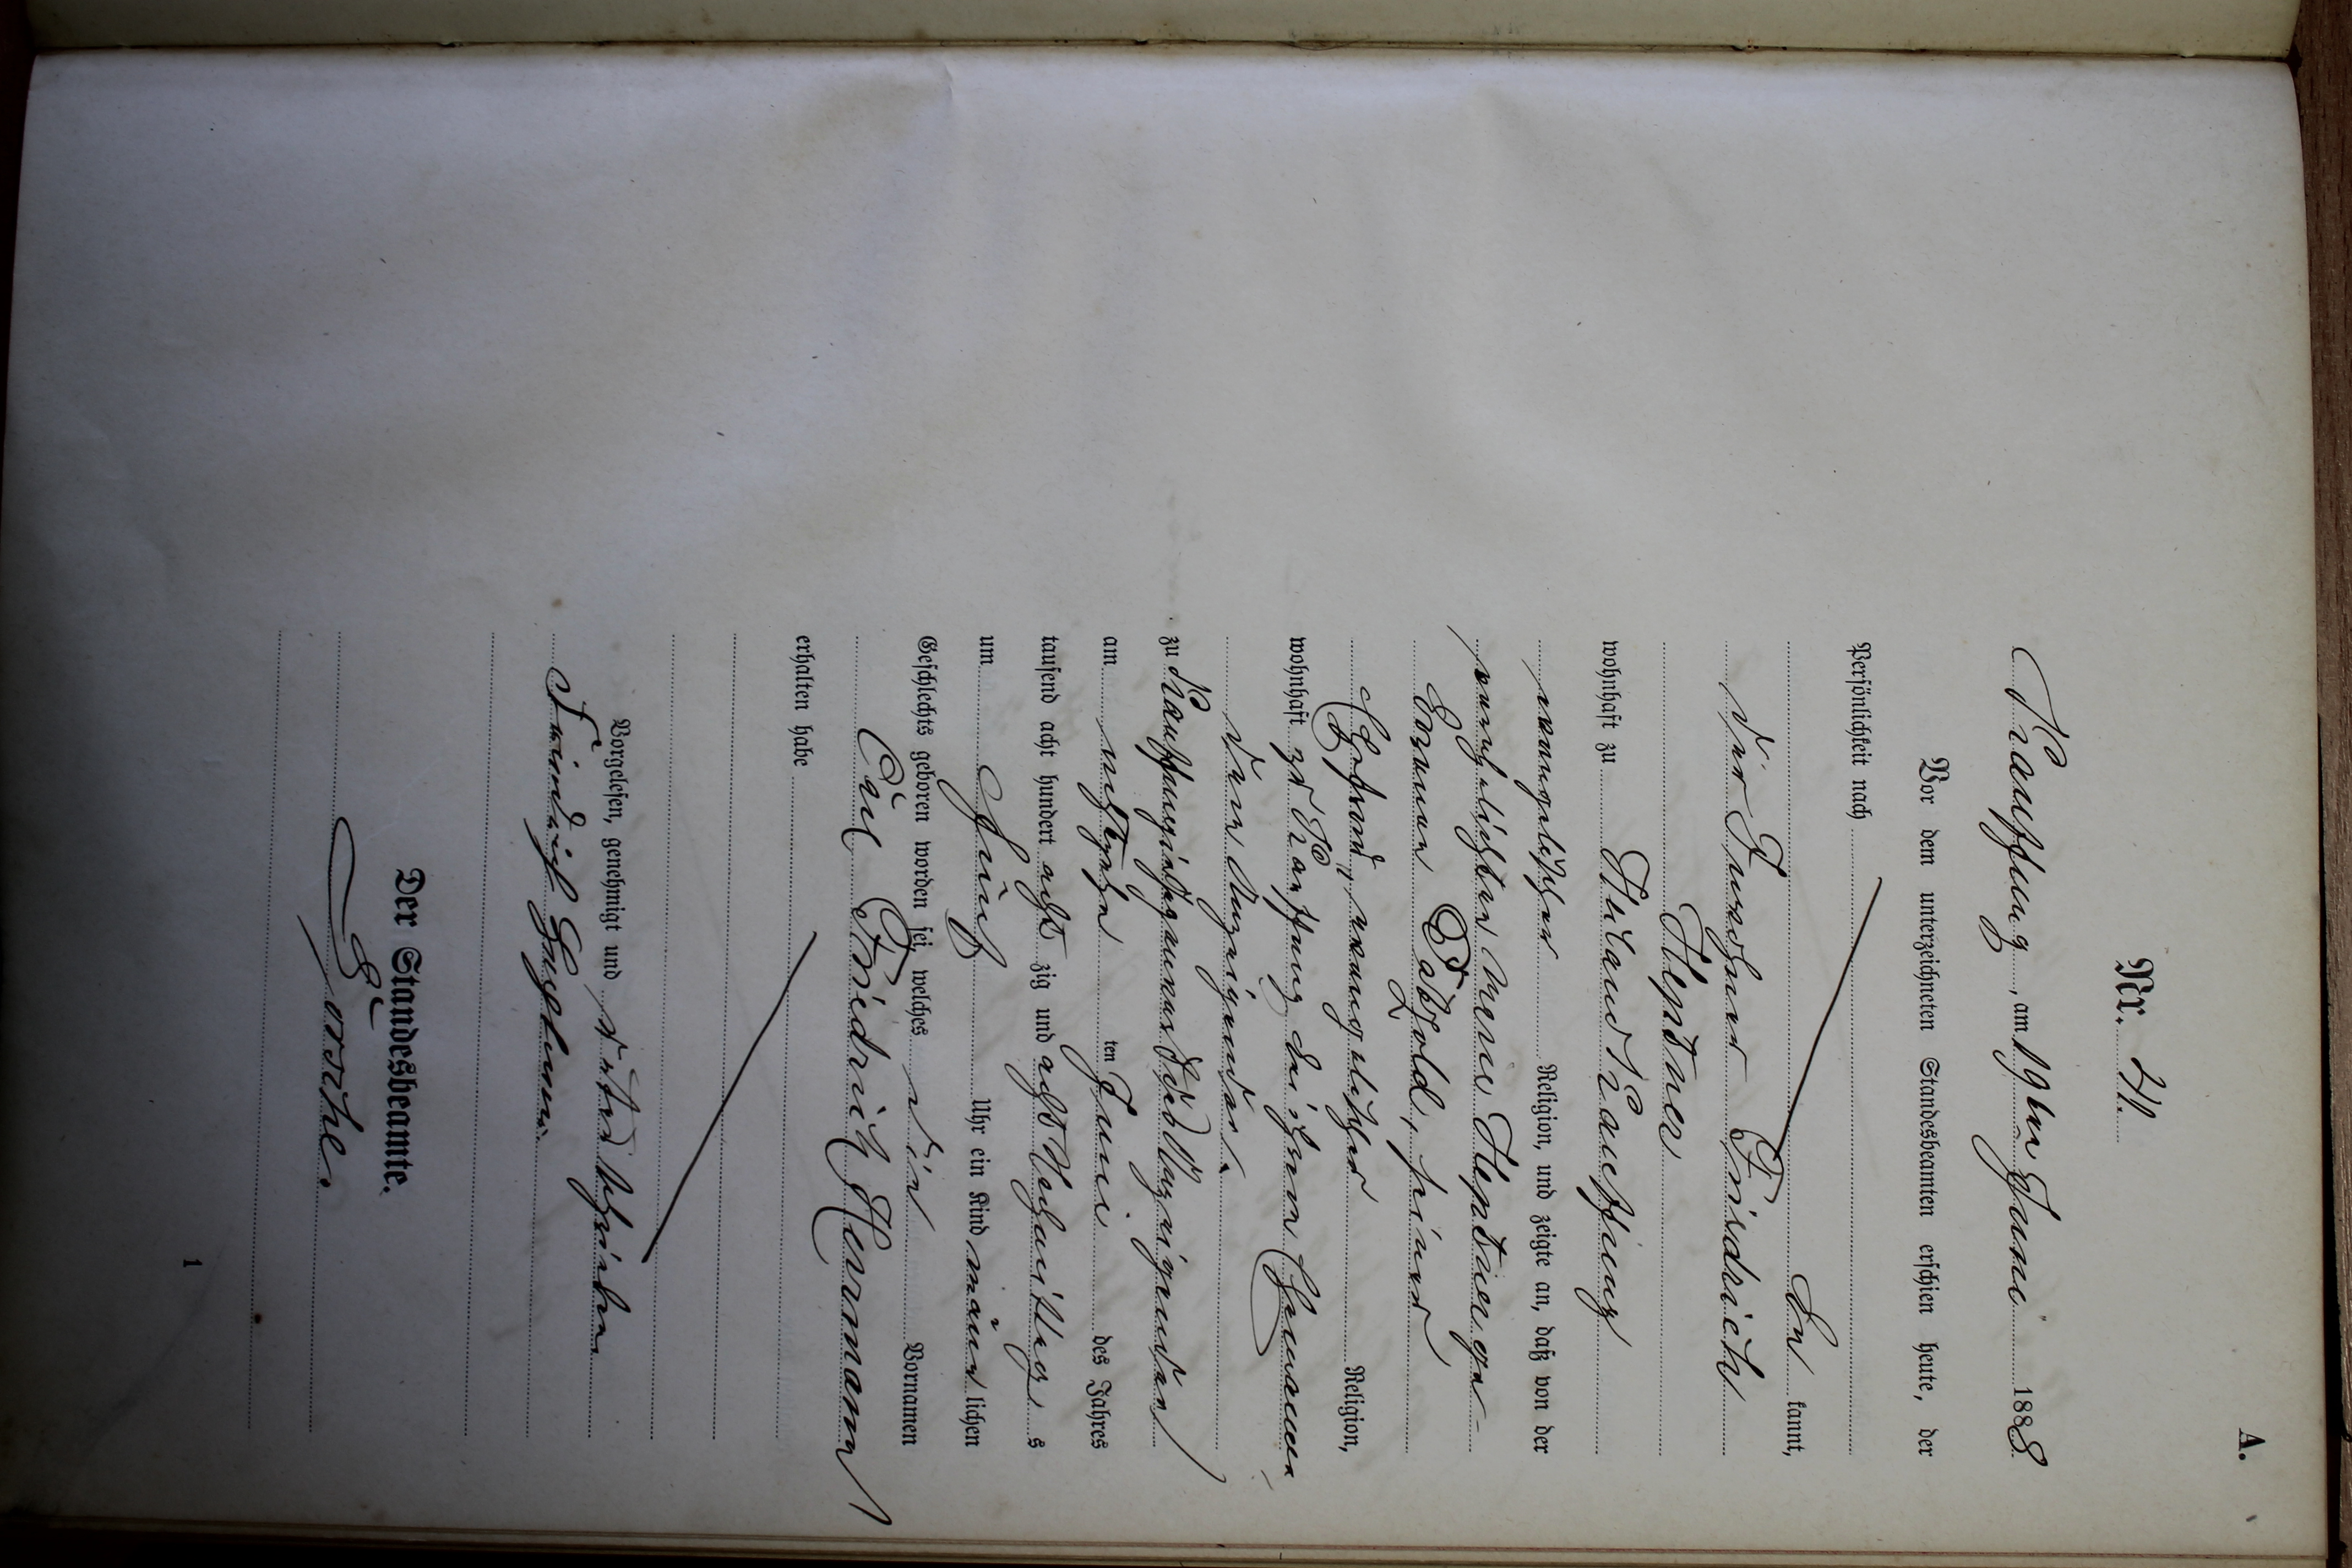 A.
Nr. 41.
Kauffung, am 19ten Juni 1888
Vor dem unterzeichneten Standesbeamten erschien heute, der
Persönlichkeit nach
be kannt,
der Friedrich
wohnhaft zu Kauffung
evangelischer Religion, und zeigte an, daß von der
verehelichten ge-
borenen seiner
Ehefrau, evangelischer Religion,
wohnhaft zu Kauffung bei ihrem Ehemanne,
dem Anzeigenden,
zu Kauffung in
am achtzehn ten Juni des Jahres
tausend acht hundert acht zig und acht Vormittags
um fünf Uhr ein Kind männ lichen
Geschlechts geboren worden sei, welches die Vornamen
Carl Friedrich Hermann
erhalten habe
Vorgelesen, genehmigt und unterschrieben
Friedrich
Der Standesbeamte.
1